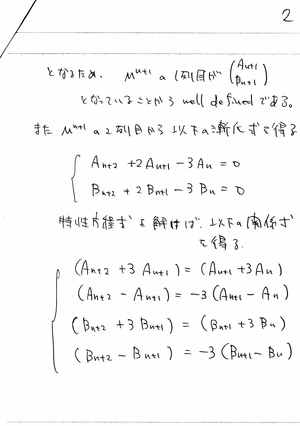 2
となるため、 M^{n+1} の 1列目が (A_{n+1} B_{n+1})
となっていることから well defined である。
また M^{n+1} の 2列目から 以下の漸化式を得る
A_{n+2} + 2A_{n+1} - 3A_n = 0
B_{n+2} + 2B_{n+1} - 3B_n = 0
特性方程式を解けば、以下の関係式
を得る.
(A_{n+2} + 3A_{n+1}) = (A_{n+1} + 3A_n)
(A_{n+2} - A_{n+1}) = -3(A_{n+1} - A_n)
(B_{n+2} + 3B_{n+1}) = (B_{n+1} + 3B_n)
(B_{n+2} - B_{n+1}) = -3(B_{n+1} - B_n)